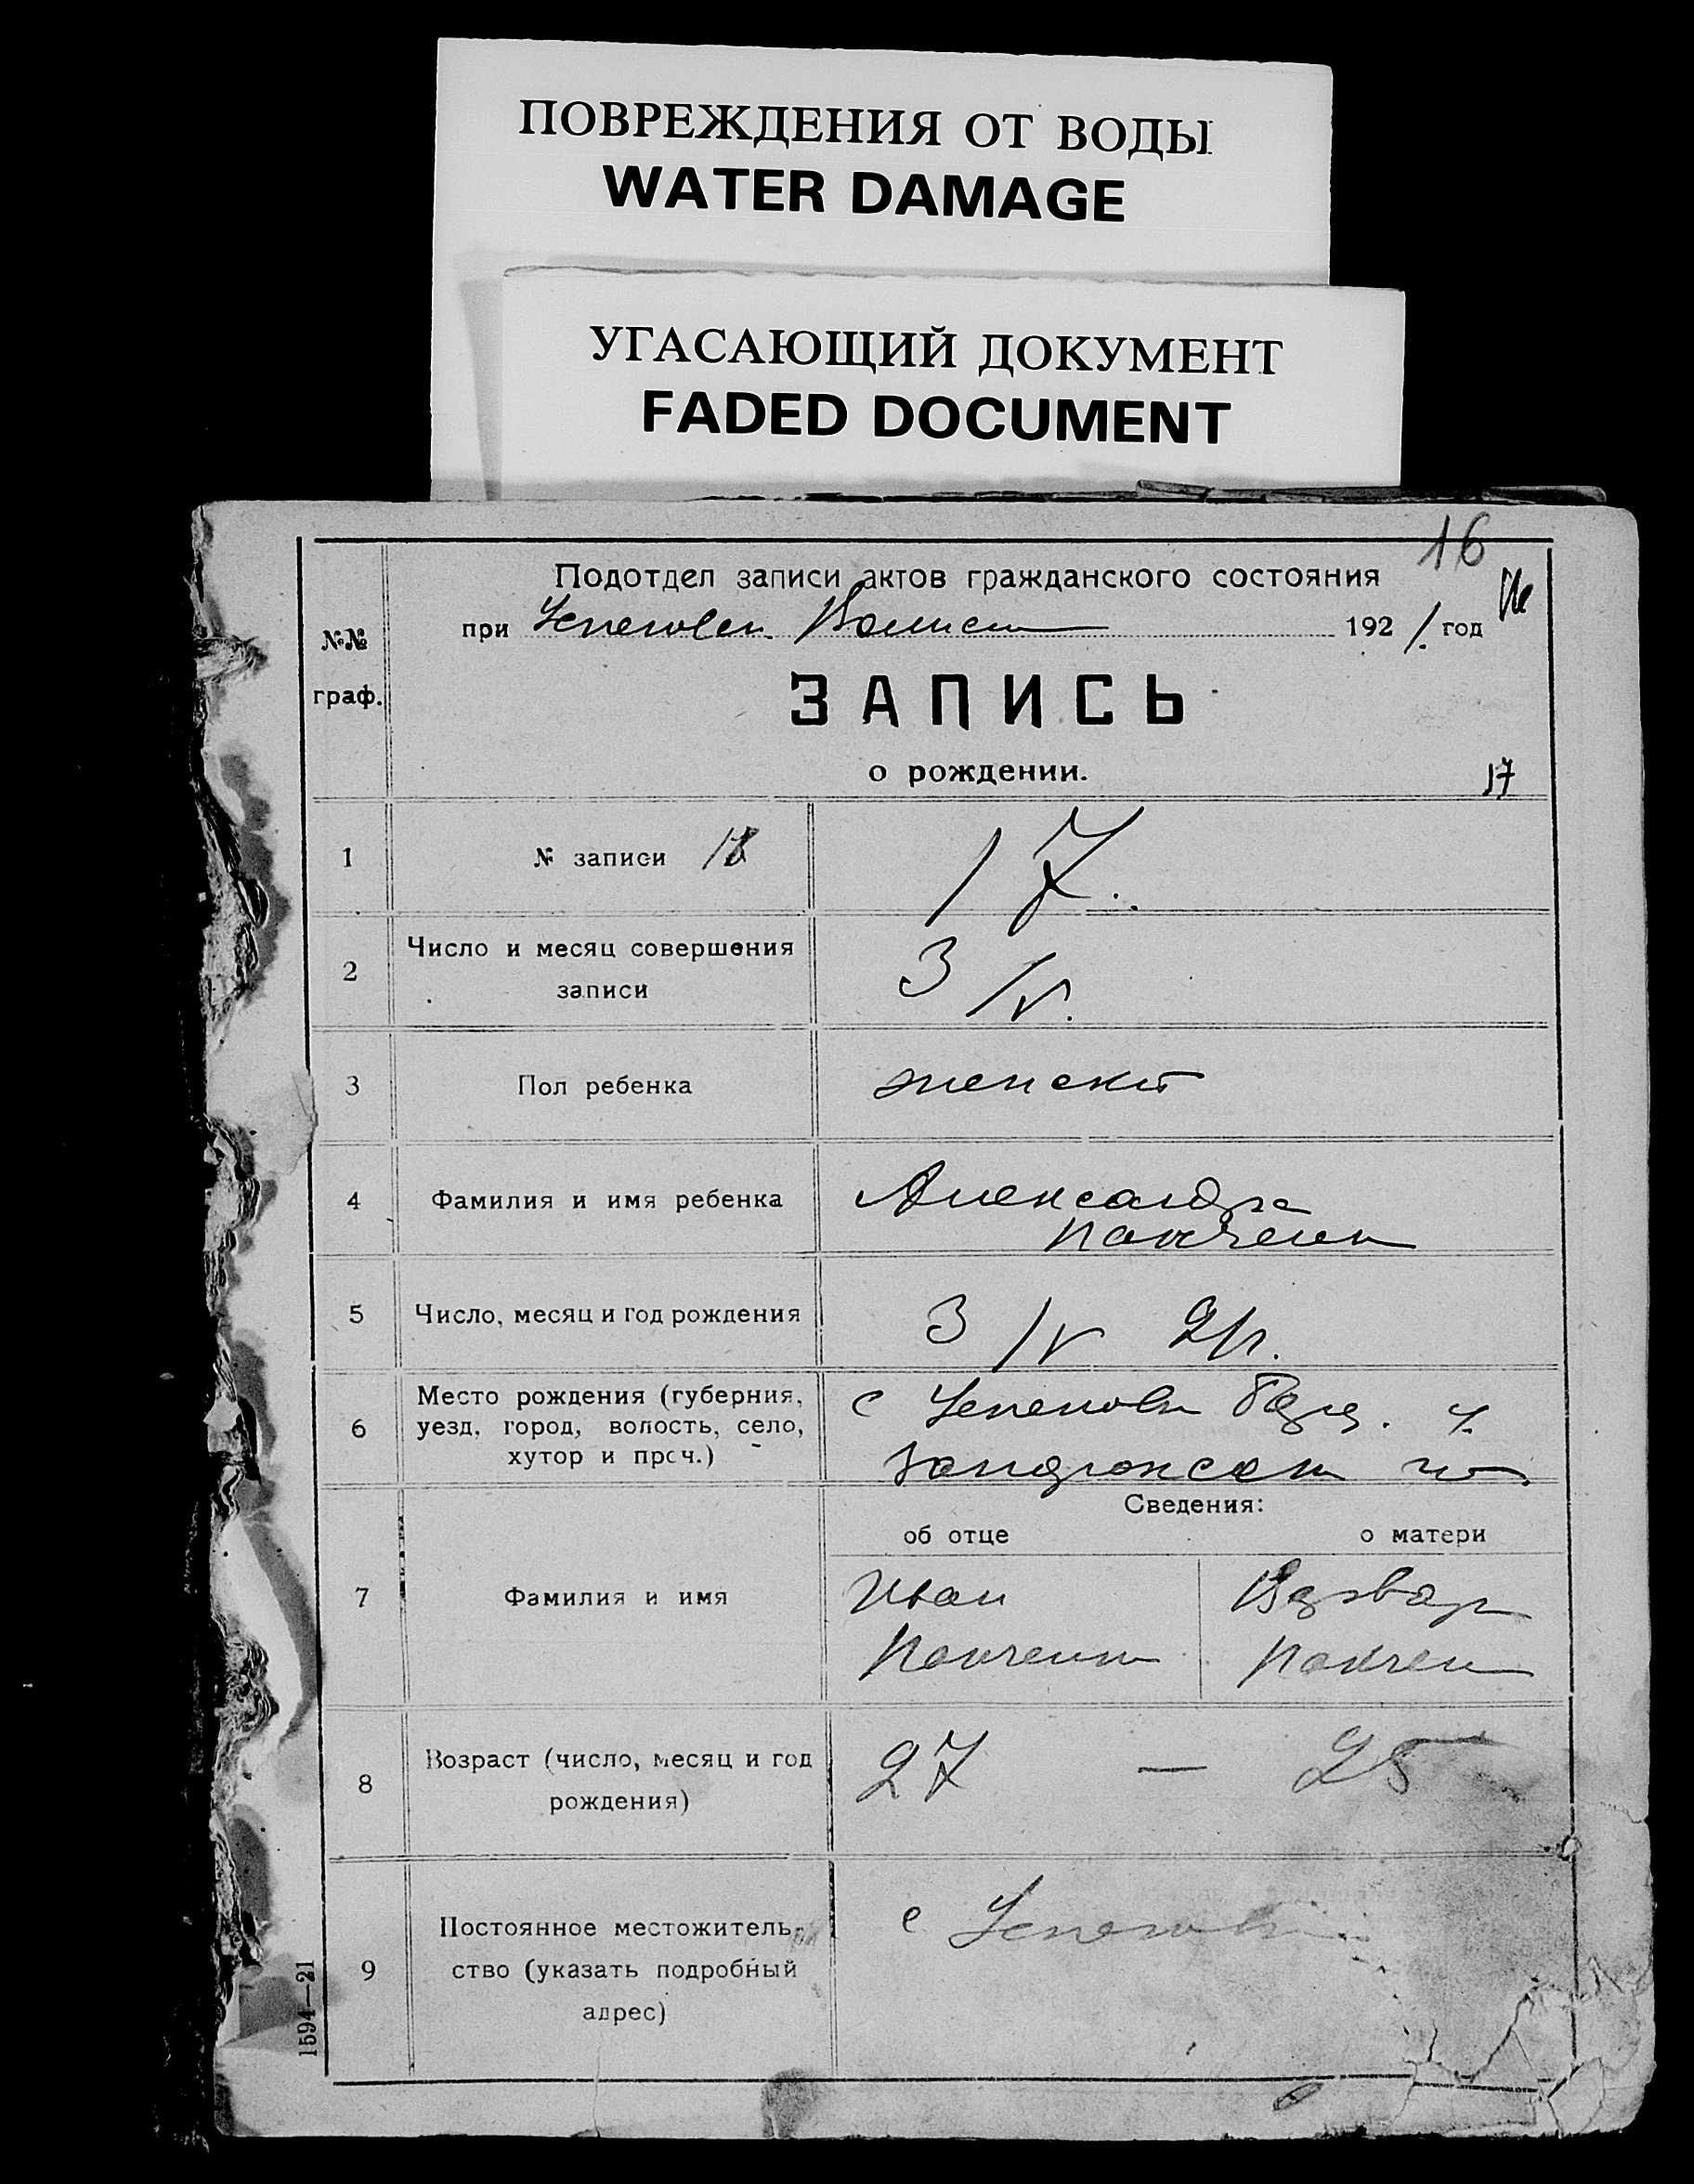 ПОВРЕЖДЕНИЯ ОТ ВОДЫ
WATER DAMAGE
УГАСАЮЩИЙ ДОКУМЕНТ
FADED DOCUMENT
16
Подотдел записи актов гражданского состояния
при 1921. год
№№
граф.
ЗАПИСЬ
о рождении.
17
1 № записи 17.
2 Число и месяц совершения
записи
3/V.
3 Пол ребенка женск
4 Фамилия и имя ребенка Александра
Панченк
5 Число, месяц и год рождения 3/V 21г.
6 Место рождения (губерния,
уезд, город, волость, село,
хутор и проч.)
с
Сведения:
об отце о матери
7 Фамилия и имя
Иван Варвар
Панченк Панчен
8 Возраст (число, месяц и год
рождения)
27 — 25
9 Постоянное местожитель-
ство (указать подробный
адрес)
с
1594—21